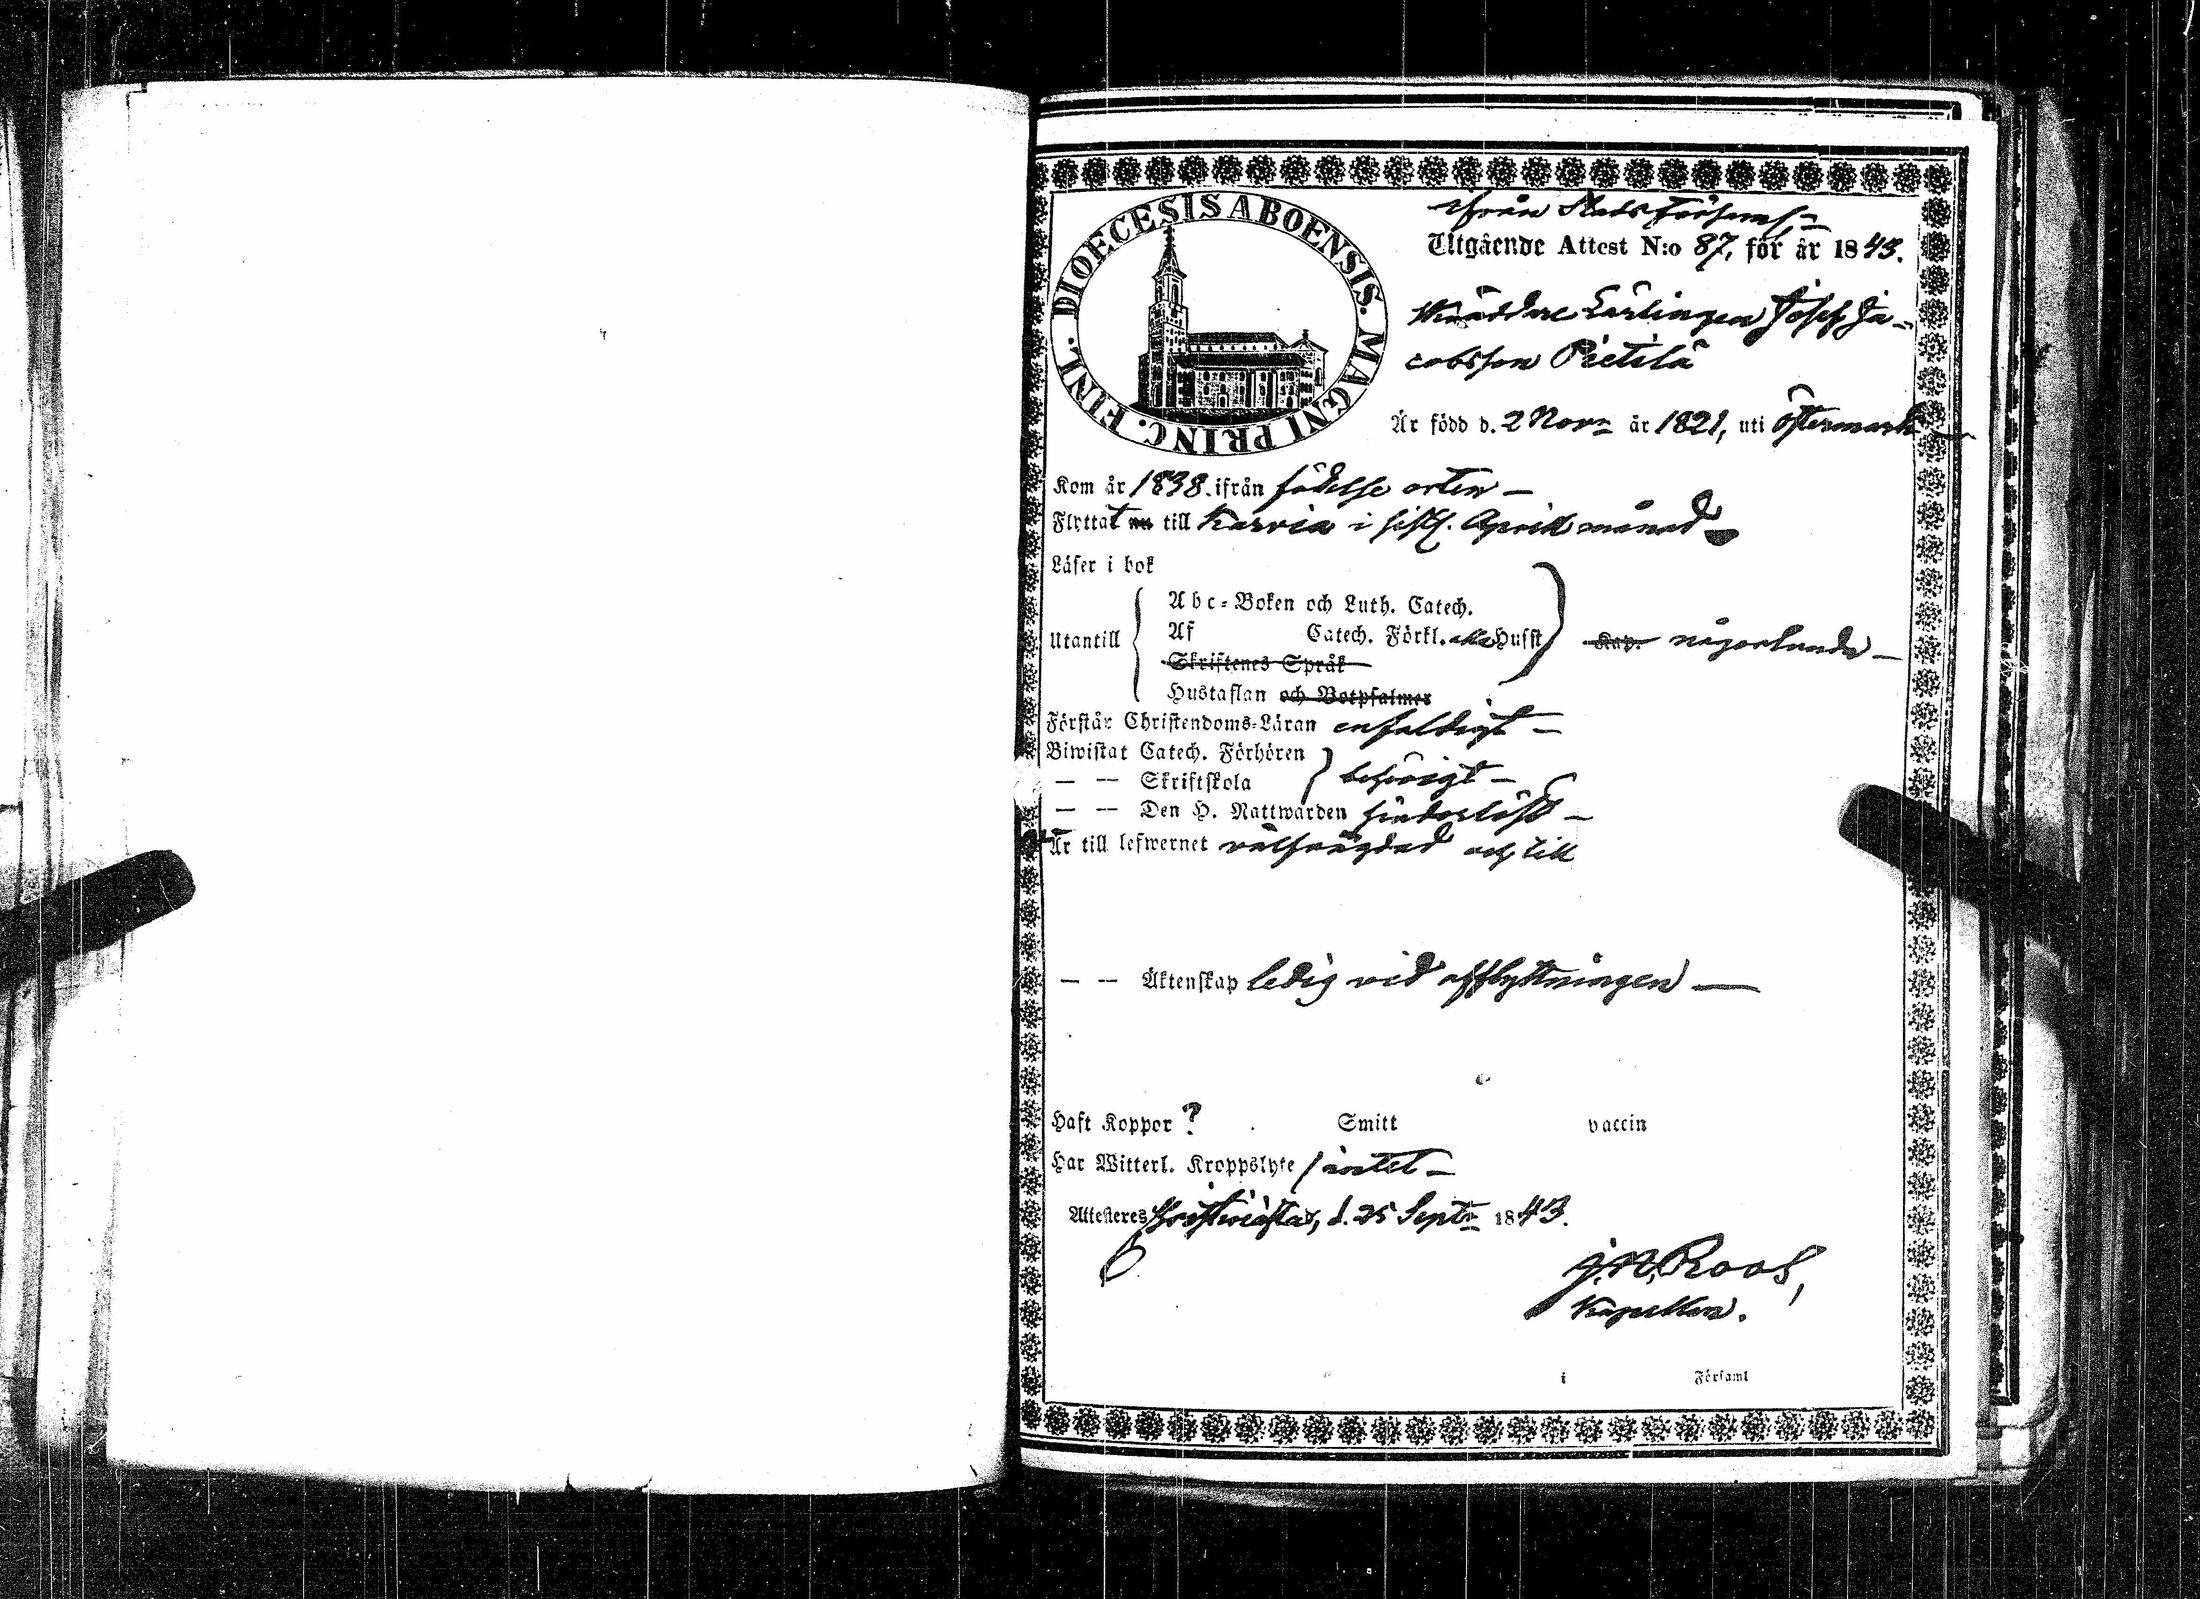 DIOECESIS ABOENSIS. MAGNI PRINC. FINL.
ifrån Stads Församl
Utgående Attest N:o 87, för år 1843.
Skräddare Lärlingen Josef Ja-
cobsson Pietilä
Är född d. 2 Nov. år 1821, uti Östermark
Kom år 1838. ifrån födelse orten —
Flyttat nu till Karvia i sistl. April månad
Läser i bok
Utantill
Abc-Boken och Luth. Catech.
Af Catech. Förkl. Husst
Skriftenes Språk
Hustaflan och Botpsalmer
Kap. någorlunda —
Förstår Christendoms-Läran enfaldigt —
Biwistat Catech. Förhören
— — Skriftskola
behörigt —
— — Den H. Nattwarden hinderlöst —
Är till lefwernet välfrägdad och till
— — Äktenskap ledig vid afflyttningen —
Haft Koppor ? Smitt vaccin
Har Witterl. Kroppslyte intet —
Attesteres Christinæstad, d. 25 Sept. 1843.
J. N. Roos,
Kapellan.
i Församl